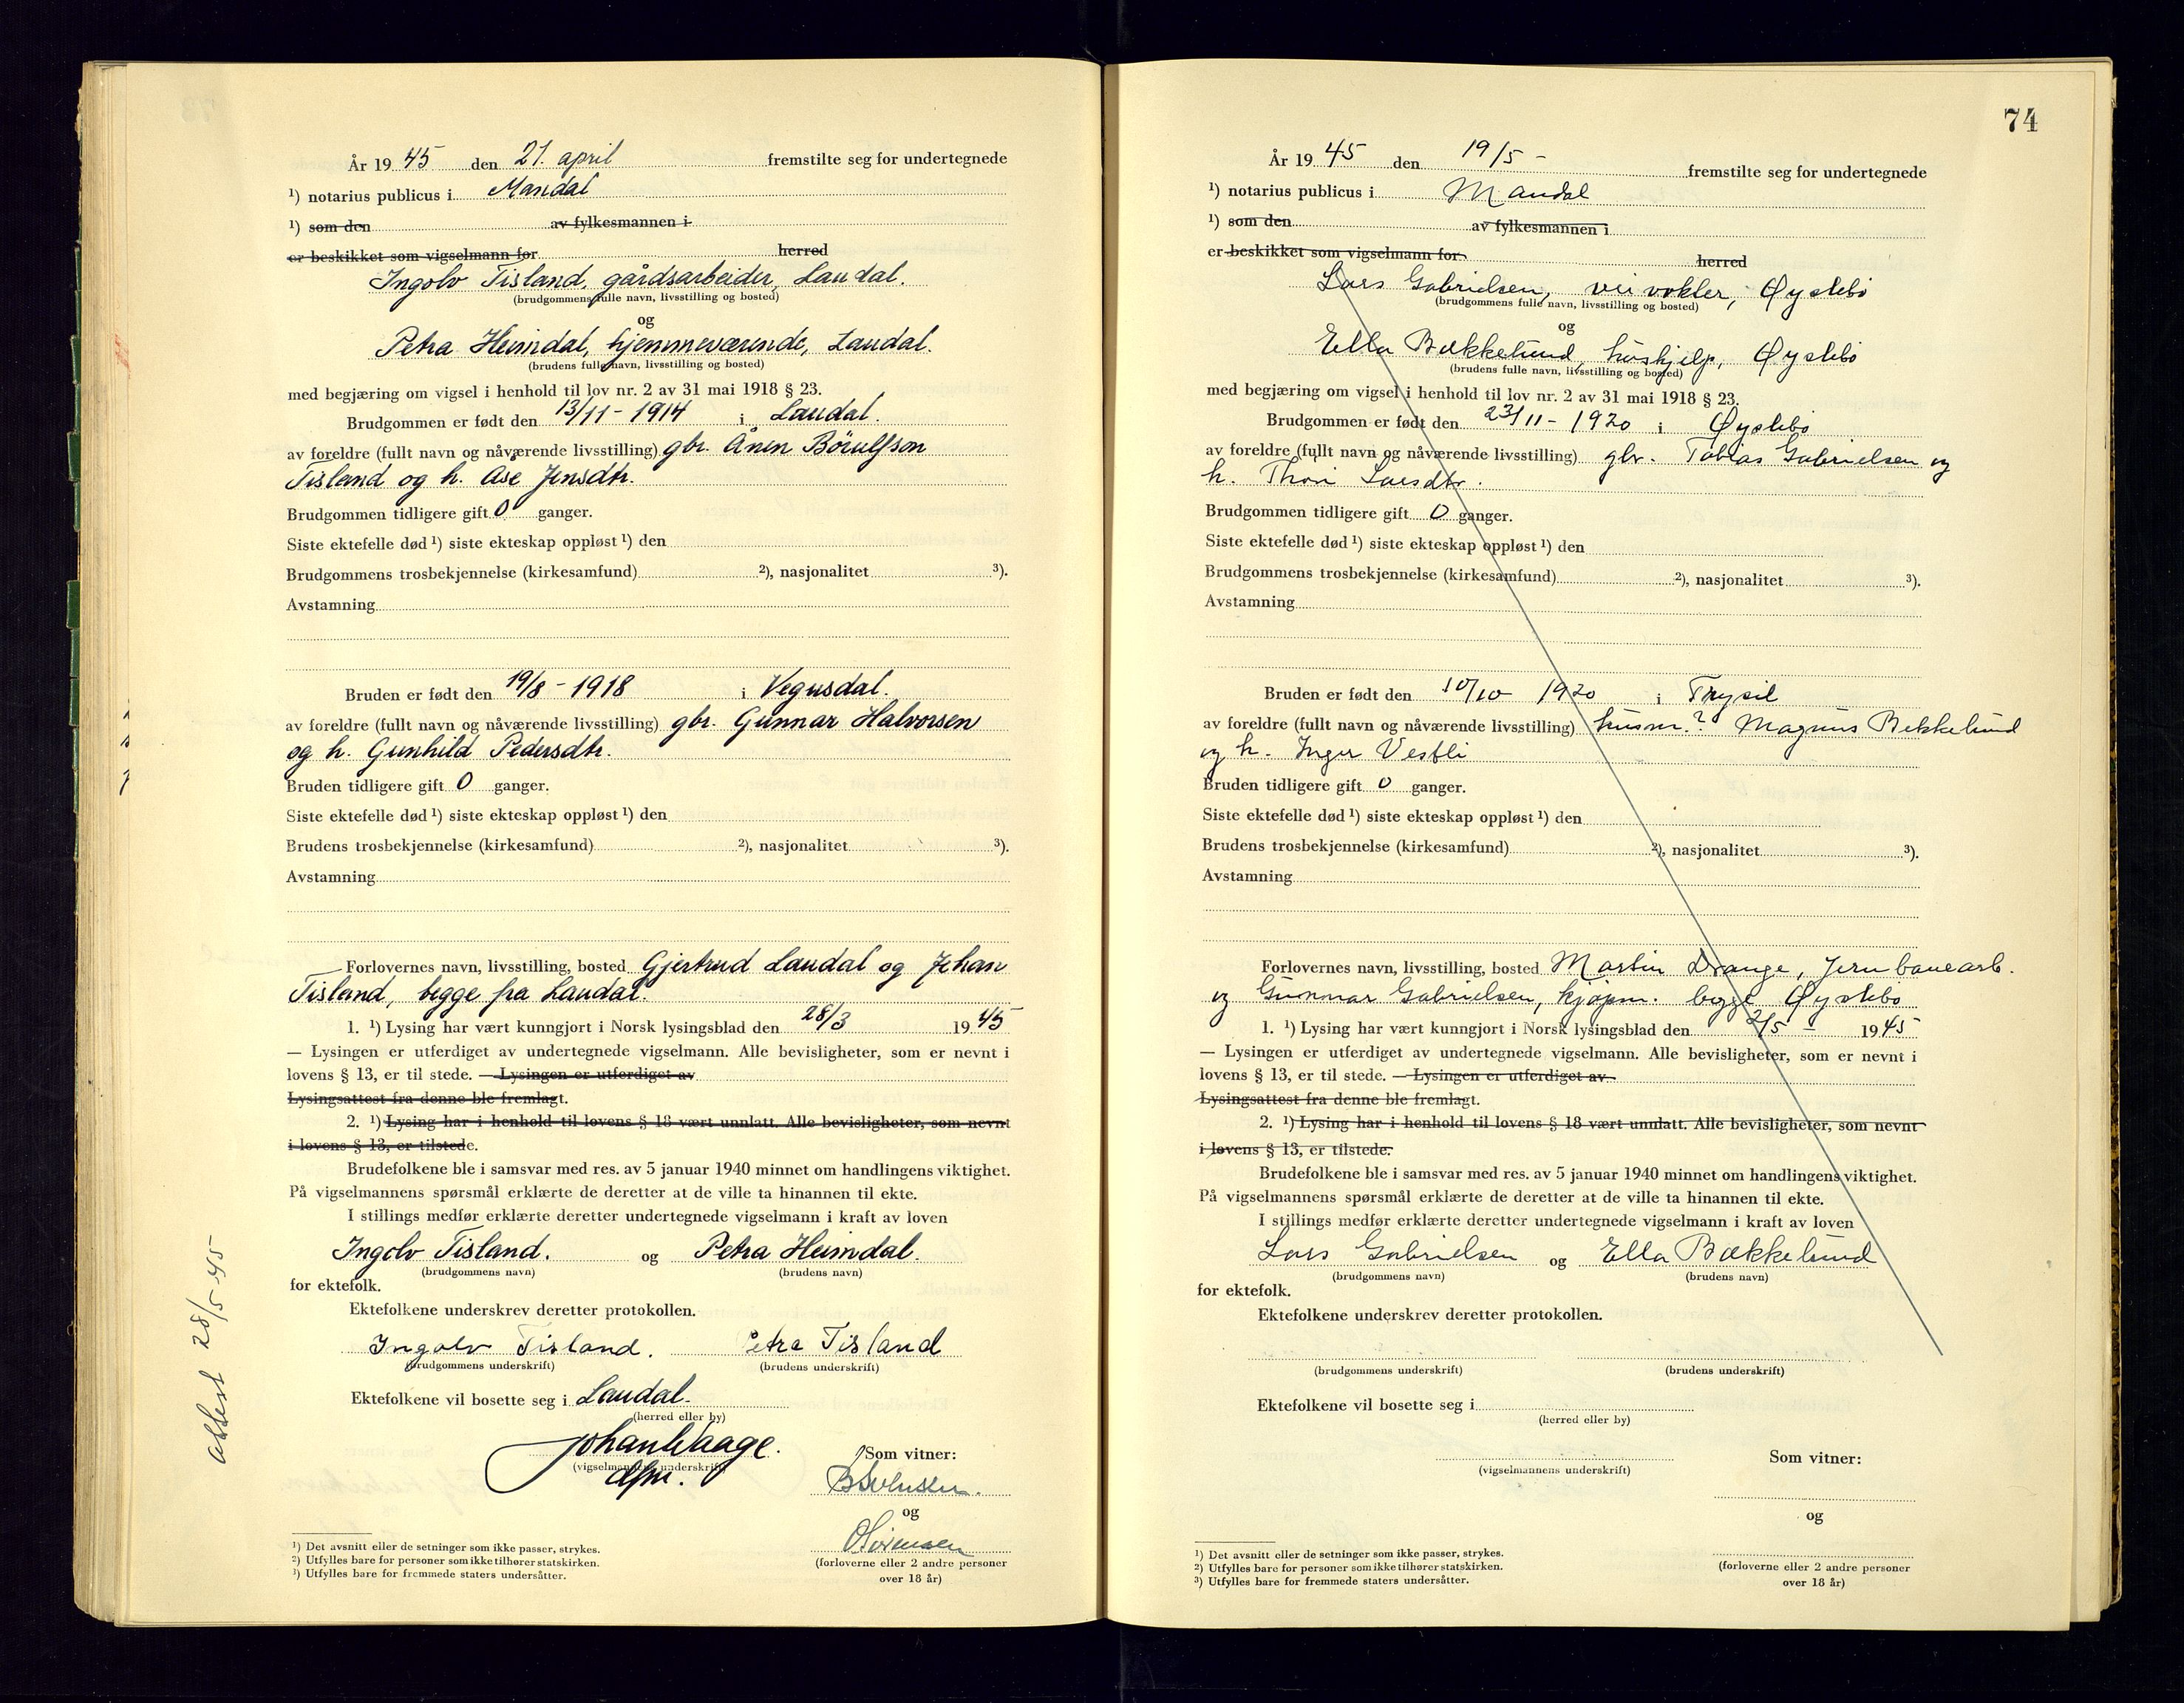 År 19 45 den 21. april fremstilte seg for undertegnede
¹) notarius publicus i Mandal
¹) som den av fylkesmannen i
er beskikket som vigselmann for herred
Ingolv Tisland, gårdsarbeider, Laudal.
(brudgommens fulle navn, livsstilling og bosted)
og
Petra Heimdal, hjemmeværende, Laudal.
(brudens fulle navn, livsstilling og bosted)
med begjæring om vigsel i henhold til lov nr. 2 av 31 mai 1918 § 23.
Brudgommen er født den 13/11 - 1914 i Laudal.
av foreldre (fullt navn og nåværende livsstilling) gbr. Ånen Börulfson
Tisland og h. Åse Jensdtr.
Brudgommen tidligere gift 0 ganger.
Siste ektefelle død ¹) siste ekteskap oppløst ¹) den
Brudgommens trosbekjennelse (kirkesamfund) ²), nasjonalitet ³).
Avstamning
Bruden er født den 19/8 - 1918 i Vegusdal.
av foreldre (fullt navn og nåværende livsstilling) gbr. Gunnar Halvorsen
og h. Gunhild Pedersdtr.
Bruden tidligere gift 0 ganger.
Siste ektefelle død ¹) siste ekteskap oppløst ¹) den
Brudens trosbekjennelse (kirkesamfund) ²), nasjonalitet ³).
Avstamning
Forlovernes navn, livsstilling, bosted Gjertrud Laudal og Johan
Tisland, begge fra Laudal.
1. ¹) Lysing har vært kunngjort i Norsk lysingsblad den 28/3 19 45
— Lysingen er utferdiget av undertegnede vigselmann. Alle bevisligheter, som er nevnt i
lovens § 13, er til stede. — Lysingen er utferdiget av
Lysingsattest fra denne ble fremlagt.
2. ¹) Lysing har i henhold til lovens § 18 vært unnlatt. Alle bevisligheter, som nevnt
i lovens § 13, er tilstede.
Brudefolkene ble i samsvar med res. av 5 januar 1940 minnet om handlingens viktighet.
På vigselmannens spørsmål erklærte de deretter at de ville ta hinannen til ekte.
I stillings medfør erklærte deretter undertegnede vigselmann i kraft av loven
Ingolv Tisland. og Petra Heimdal.
(brudgommens navn) (brudens navn)
for ektefolk.
Ektefolkene underskrev deretter protokollen.
Ingolv Tisland. Petra Tisland
(brudgommens underskrift) (brudens underskrift)
Ektefolkene vil bosette seg i Laudal.
(herred eller by)
Johan Waage.
Som vitner:
(vigselmannens underskrift)
dfm.
og
O Sörensen
(forloverne eller 2 andre personer
over 18 år)
¹) Det avsnitt eller de setninger som ikke passer, strykes.
²) Utfylles bare for personer som ikke tilhører statskirken.
³) Utfylles bare for fremmede staters undersåtter.
attest 28/5-45
74
År 19 45 den 19/5 - fremstilte seg for undertegnede
¹) notarius publicus i Mandal
¹) som den av fylkesmannen i
er beskikket som vigselmann for herred
Lars Gabrielsen, veivokter, Øyslebø
(brudgommens fulle navn, livsstilling og bosted)
og
Ella Bækkelund, hushjelp, Øyslebø
(brudens fulle navn, livsstilling og bosted)
med begjæring om vigsel i henhold til lov nr. 2 av 31 mai 1918 § 23.
Brudgommen er født den 23/11 - 1920 i Øyslebø
av foreldre (fullt navn og nåværende livsstilling) gbr. Tobias Gabrielsen og
h. Thori Larsdtr.
Brudgommen tidligere gift 0 ganger.
Siste ektefelle død ¹) siste ekteskap oppløst ¹) den
Brudgommens trosbekjennelse (kirkesamfund) ²), nasjonalitet ³).
Avstamning
Bruden er født den 10/10 1920 i Trysil
av foreldre (fullt navn og nåværende livsstilling) husm.? Magnus Bekkelund
og h. Inger Vestli
Bruden tidligere gift 0 ganger.
Siste ektefelle død ¹) siste ekteskap oppløst ¹) den
Brudens trosbekjennelse (kirkesamfund) ²), nasjonalitet ³).
Avstamning
Forlovernes navn, livsstilling, bosted Martin Drange, Jernbanearb.
og Gunnar Gabrielsen, kjøpm. begge Øyslebø
1. ¹) Lysing har vært kunngjort i Norsk lysingsblad den 2/5 - 19 45
— Lysingen er utferdiget av undertegnede vigselmann. Alle bevisligheter, som er nevnt i
lovens § 13, er til stede. — Lysingen er utferdiget av
Lysingsattest fra denne ble fremlagt.
2. ¹) Lysing har i henhold til lovens § 18 vært unnlatt. Alle bevisligheter, som nevnt
i lovens § 13, er tilstede.
Brudefolkene ble i samsvar med res. av 5 januar 1940 minnet om handlingens viktighet.
På vigselmannens spørsmål erklærte de deretter at de ville ta hinannen til ekte.
I stillings medfør erklærte deretter undertegnede vigselmann i kraft av loven
Lars Gabrielsen og Ella Bækkelund
(brudgommens navn) (brudens navn)
for ektefolk.
Ektefolkene underskrev deretter protokollen.
(brudgommens underskrift) (brudens underskrift)
Ektefolkene vil bosette seg i
(herred eller by)
Som vitner:
(vigselmannens underskrift)
og
(forloverne eller 2 andre personer
over 18 år)
¹) Det avsnitt eller de setninger som ikke passer, strykes.
²) Utfylles bare for personer som ikke tilhører statskirken.
³) Utfylles bare for fremmede staters undersåtter.